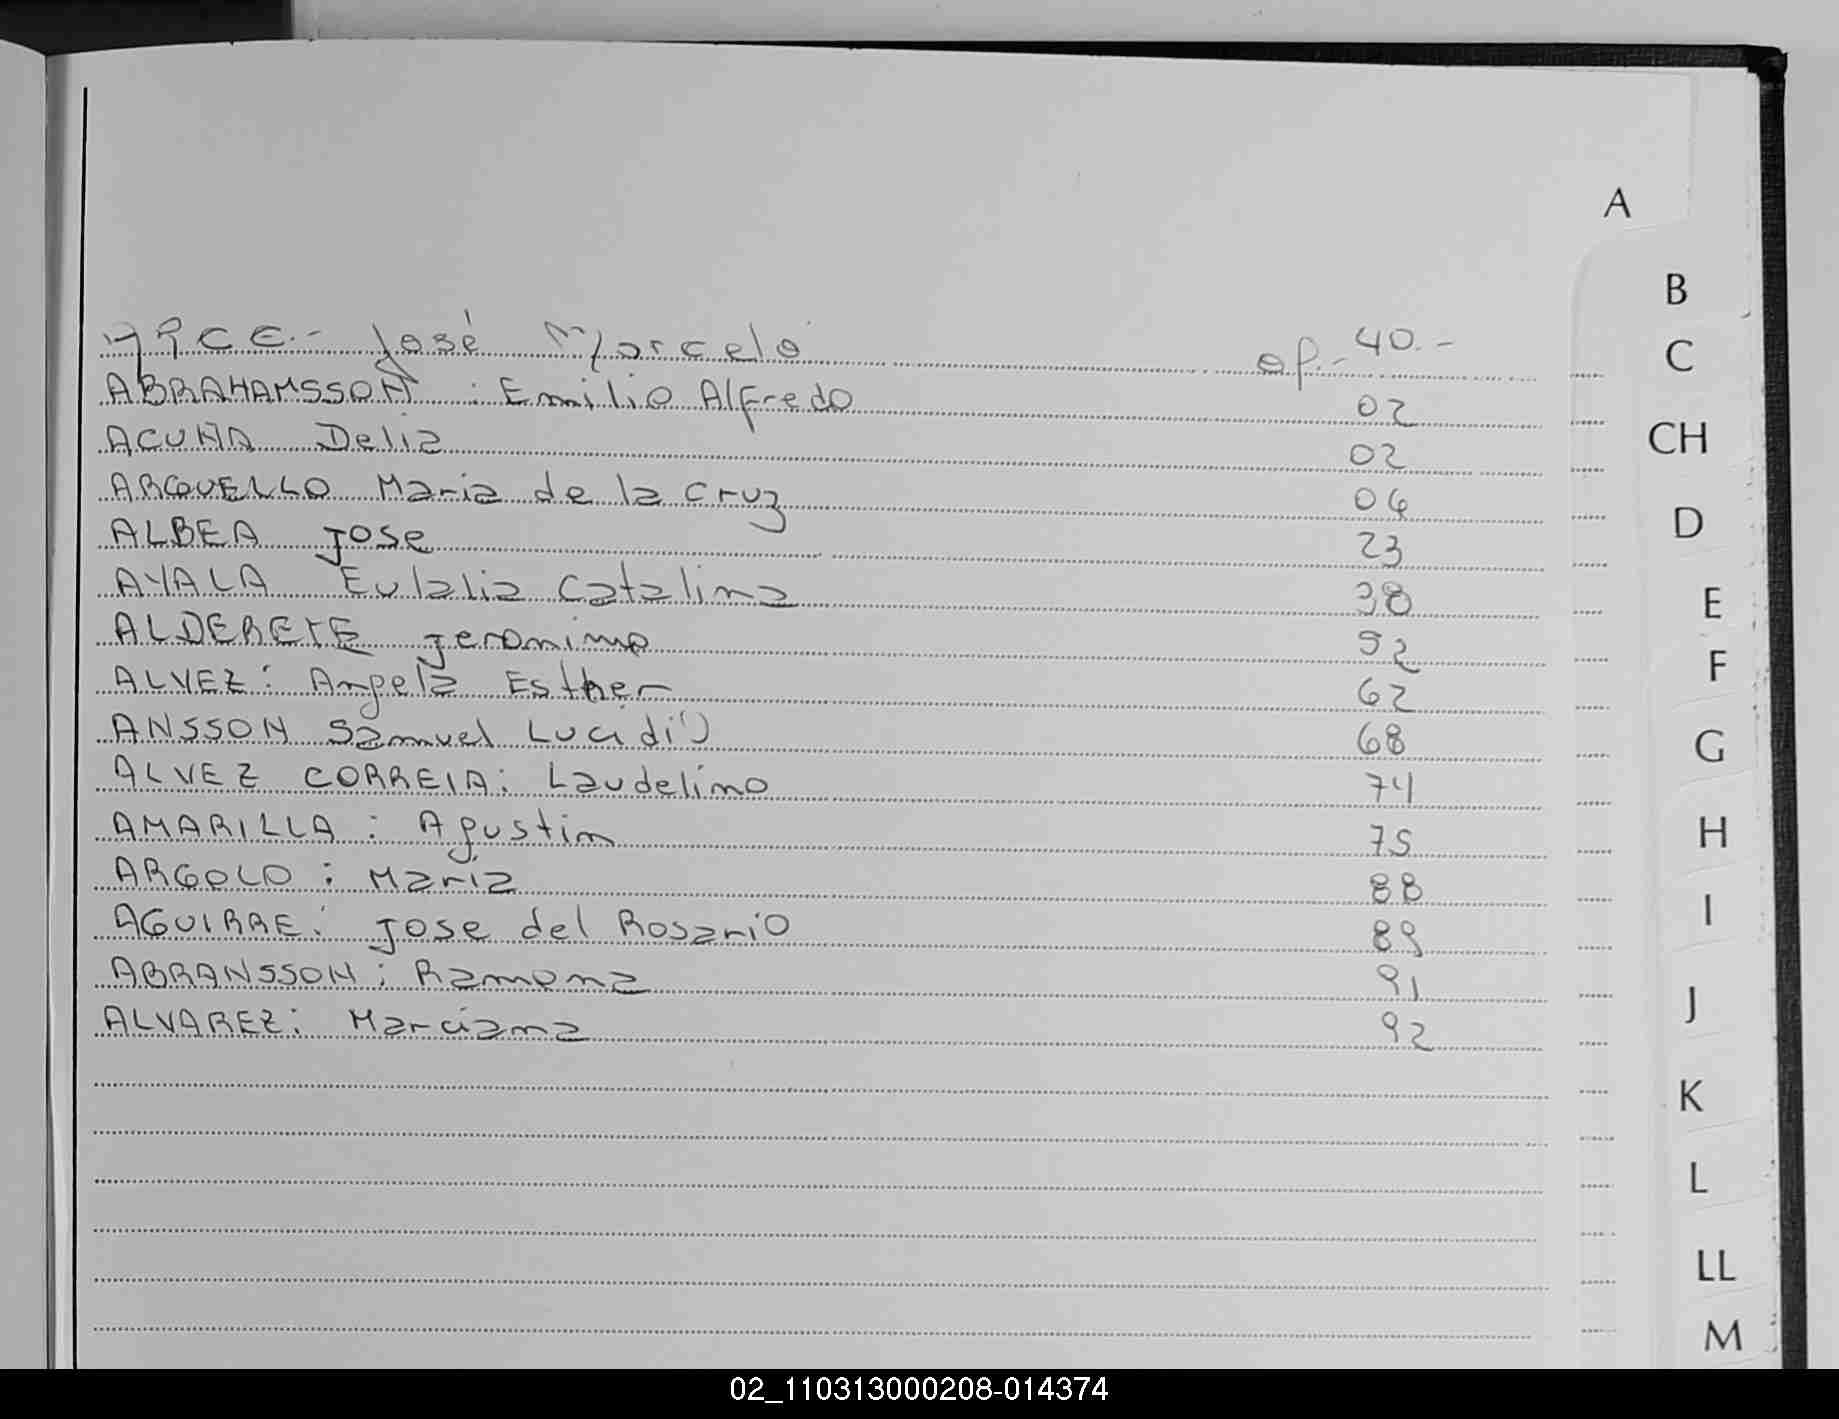 ARCE.- José Marcelo op.- 40.-
ABRAHAMSSON : Emilio Alfredo 02
ACUÑA Delia 02
ARGUELLO Maria de la Cruz 04
ALBEA Jose 23
AYALA Eulalia Catalina 38
ALDERETE Jeronimo 52
ALVEZ: Angela Esther 62
ANSSON Samuel Lucidio 68
ALVEZ CORREIA: Laudelino 74
AMARILLA : Agustin 75
ARGOLO : Maria 88
AGUIRRE: Jose del Rosario 89
ABRANSSON : Ramona 91
ALVAREZ: Marciana 92
A
B
C
CH
D
E
F
G
H
I
J
K
L
LL
M
02_110313000208-014374